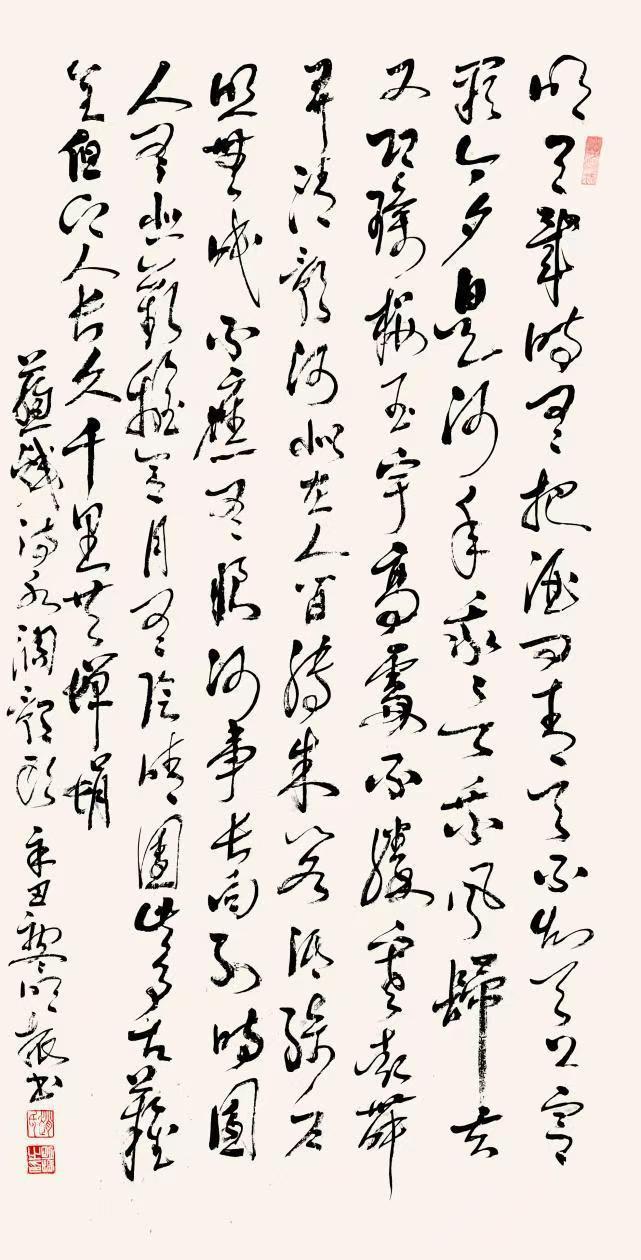 明月幾時有把酒問青天不知天上宮
闕今夕是何年我欲乘風歸去
又恐瓊樓玉宇高處不勝寒起舞
弄清影何似在人間轉朱閣低綺户
照無眠不應有恨何事長向別時圓
人有悲歡離合月有陰晴圓此事古難
全但願人長久千里共嬋娟
蘇軾詩水調歌頭 辛丑黎明振书